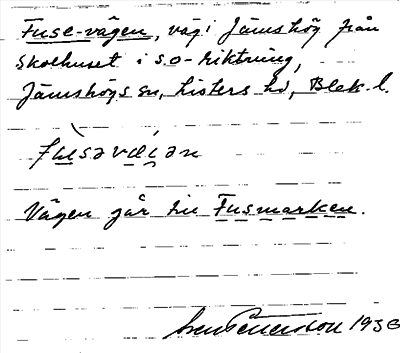 Fuse-vägen, väg i Jämshög från
skolhuset i s.o-riktning,
Jämshögs sn, Listers hd, Blek. l.
Vägen går till Fusmarken.
1936